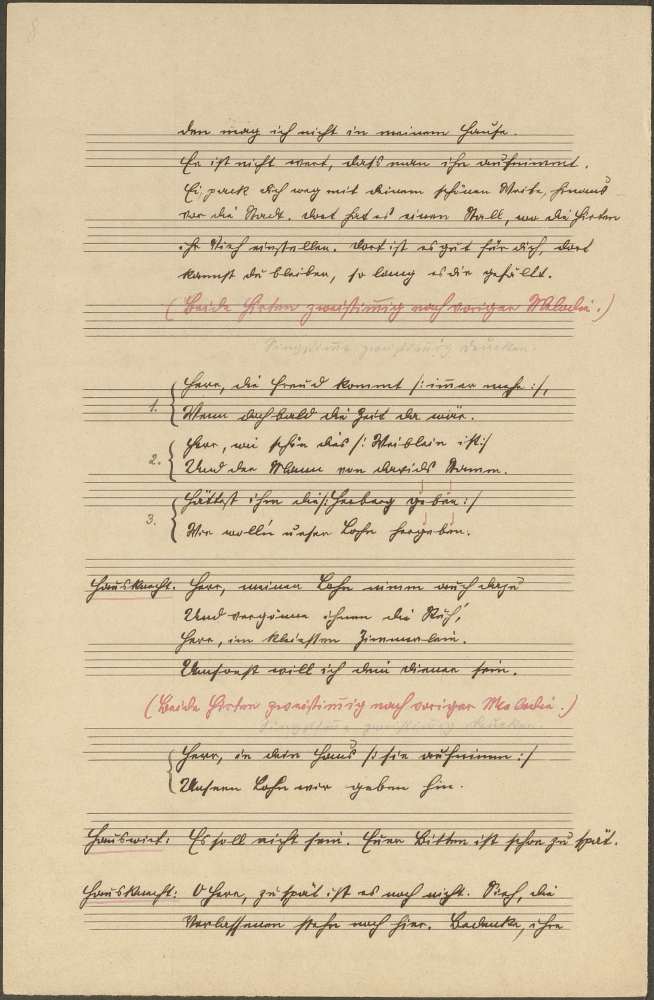 8
den mag ich nicht in meinem Hause.
Er ist nicht wert, daß man ihn aufnimmt.
Ei, pack dich weg mit deinem schönen Weibe, hinaus
vor die Stadt. Dort hat es einen Stall, wo die Hirten
ihr Vieh einstellen. Dort ist es gut für dich, dort
kannst du bleiben, so lang es dir gefällt.
(Beide Hirten zweistimmig nach voriger Melodie.)
Singstimme zweistimmig drucken.
Herr, die Freud kommt /: immer mehr :/,
1.
Wenn doch bald die Zeit da wär.
Herr, wie schön dies /: Weiblein ist :/
2.
Und der Mann von Davids Stamm.
Hättest ihm die /: Herberg geben :/
3.
Wir woll'n unsern Lohn hergeben.
Hausknecht. Herr, meinen Lohn nimm auch dazu
Und vergönne ihnen die Ruh',
Herr, im kleinsten Zimmerlein.
Umsonst will ich dein Diener sein.
(Beide Hirten zweistimmig nach voriger Melodie.)
Singstimme zweistimmig drucken.
Herr, in dein Haus /: sie aufnimm :/
Unsern Lohn wir geben hin.
Hauswirt: Es soll nicht sein. Euer Bitten ist schon zu spät.
Hausknecht: O Herr, zu spät ist es noch nicht. Sieh, die
Verlassenen stehn noch hier. Bedenke, ihre